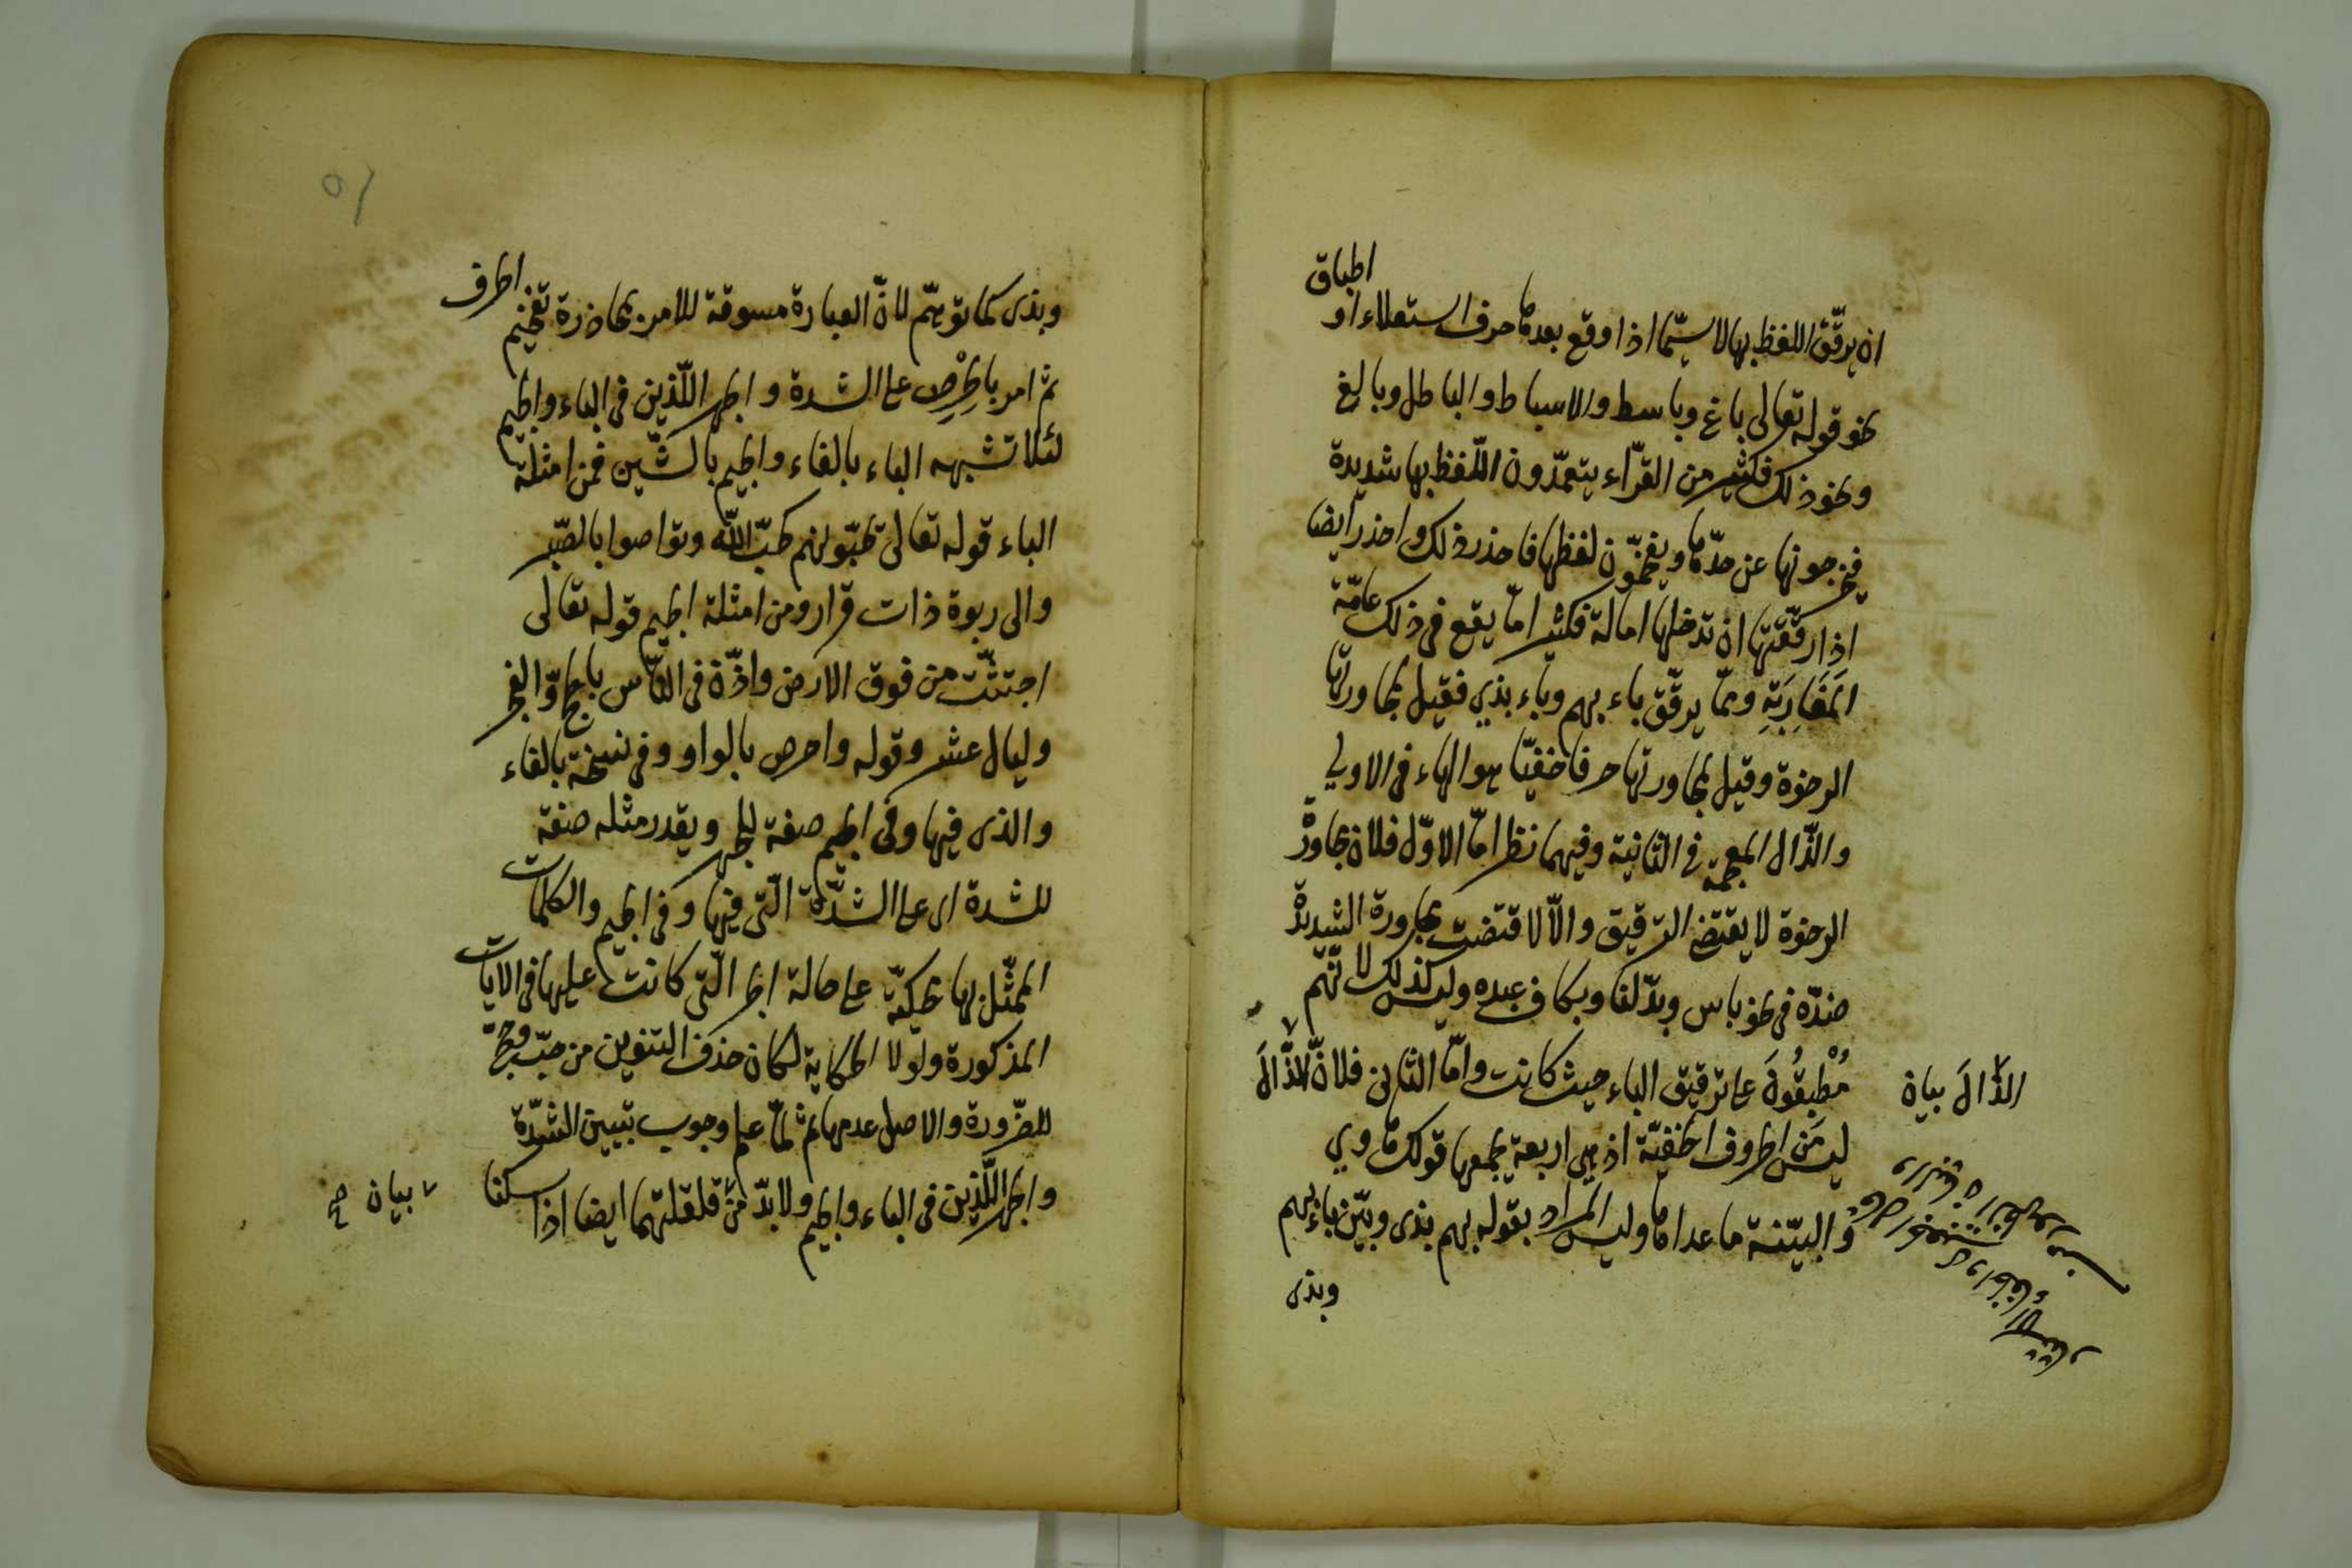 ان يرقّق اللفظ بها لا سيّما اذا وقع بعدها حرف استعلاء او اطباق
نحو قوله تعالى باغ وباسط والاسباط والباطل وبالغ
ونحو ذلك فكثير من القرّاء يتعمّدون اللّفظ بها شديدة
فيخرجونها عن حدّها ويفخّمون لفظها فاحذر ذلك واحذر ايضا
اذا رقّقتها ان تدخلها امالة فكثيرا مّا يقع فى ذلك عامّة
المَغَارِبَةِ وممّا يرقّق باء بهم وباء بذي فقيل لمجاورتها
الرخوة وقيل لمجاورتها حرفا خفيّا هو الهاء فى الاولى
والذّال المعجمة فى الثانية وفيهما نظر امّا الاوّل فلان مجاورة
الرخوة لا يقتضى الترقيق والّا لاقتضت مجاورة الشديدة
ضدّه فى نحو باس وبدّلنا وبكاف عبده وليس كذلك لانّهم
مُطْبِقُونَ على ترقيق الباء حيث كانت وامّا الثانى فلانّ الذّالَ
ليس من الحروف الخفيّة اذ هى اربعة يجمعها قولك هاوي
والبيّنة ما عداها وليس المراد بقوله بهم بذى وبيّن باء بهم
وبذى
الذّالَ بيان
وبذى كما توهّم لانّ العبارة مسوقة للامر بمحاذرة تفخيم الحرف
ثم امر بالحِرْصِ على الشدة والجهر اللّذين فى الباء والجيم
لئلا تشبه الباء بالفاء والجيم بالشّين فمن امثلة
الباء قوله تعالى يحبّونهم كحبّ الله وتواصوا بالصّبر
والى ربوة ذات قرار ومن امثلة الجيم قوله تعالى
اجتثّت من فوق الارض واذّن فى النّاس بالحجّ والفجر
وليال عشر وقوله واحرص بالواو وفى نسخة بالفاء
والذى فيها وفى الجيم صفة للجهر ويقدر مثله صفة
للشدة اى على الشدّة الّتى فيها وفى الجيم والكلمات
الممثّل بها محكيّة على حالة الجر الّتى كانت عليها فى الايات
المذكورة ولولا الحكاية لكان حذف التنوين من حبّ وحجّة
للضّرورة والاصل عدمها ثم لمّا علم وجوب تبيين الشدّة
والجهر اللّذين فى الباء والجيم ولا بدّ من قلقلتهما ايضا اذا سكنا
بيان صح